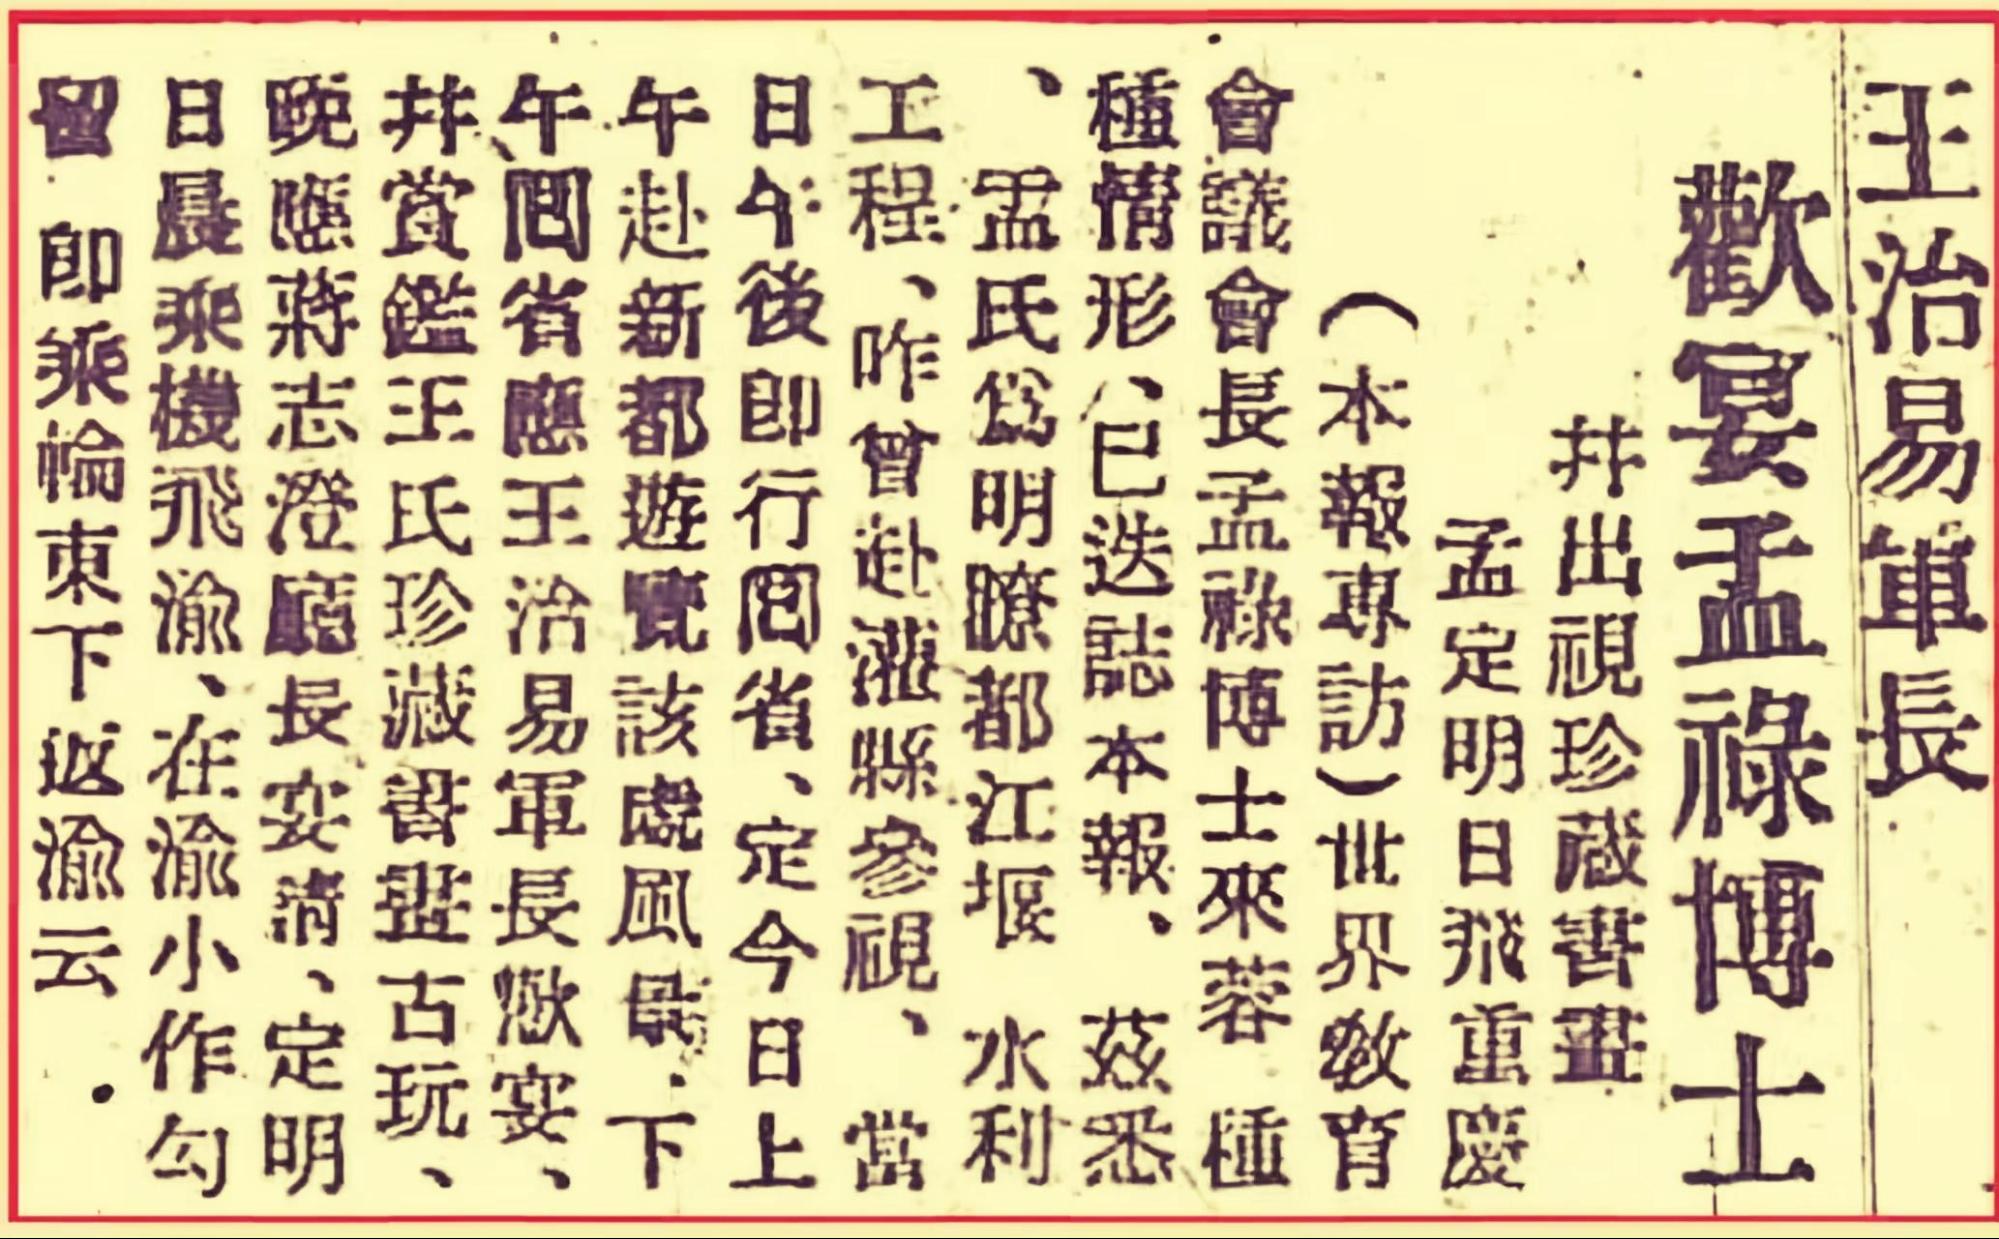 王治易軍長
歡宴孟祿博士
并出視珍藏書畫
孟定明日飛重慶
（本報專訪）世界教育
會議會長孟祿博士來蓉種
種情形、已迭誌本報、茲悉
、孟氏為明瞭都江堰水利
工程、昨曾赴灌縣參視、當
日午後即行囘省、定今日上
午赴新都遊覽該處風景、下
午囘省應王治易軍長歡宴、
并賞鑑王氏珍藏書畫古玩、
晚應蔣志澄廳長宴請、定明
日晨乘機飛渝、在渝小作勾
留即乘輪東下返渝云